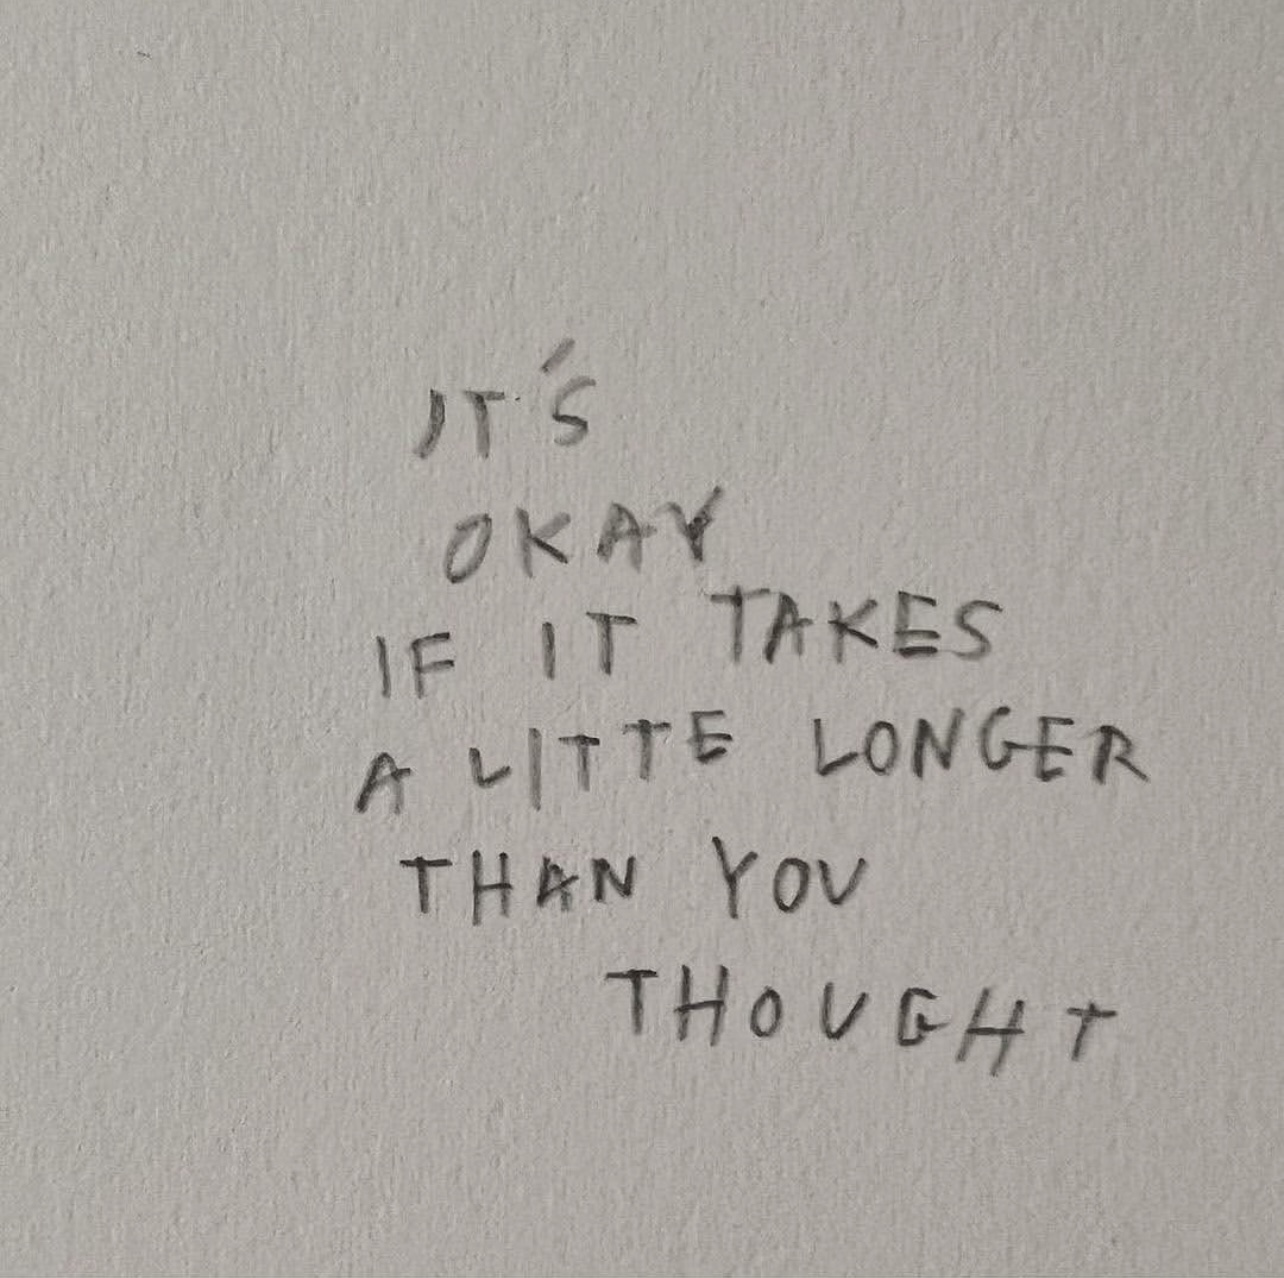 IT'S
OKAY
IF IT TAKES
A LITTE LONGER
THAN YOU
THOUGHT